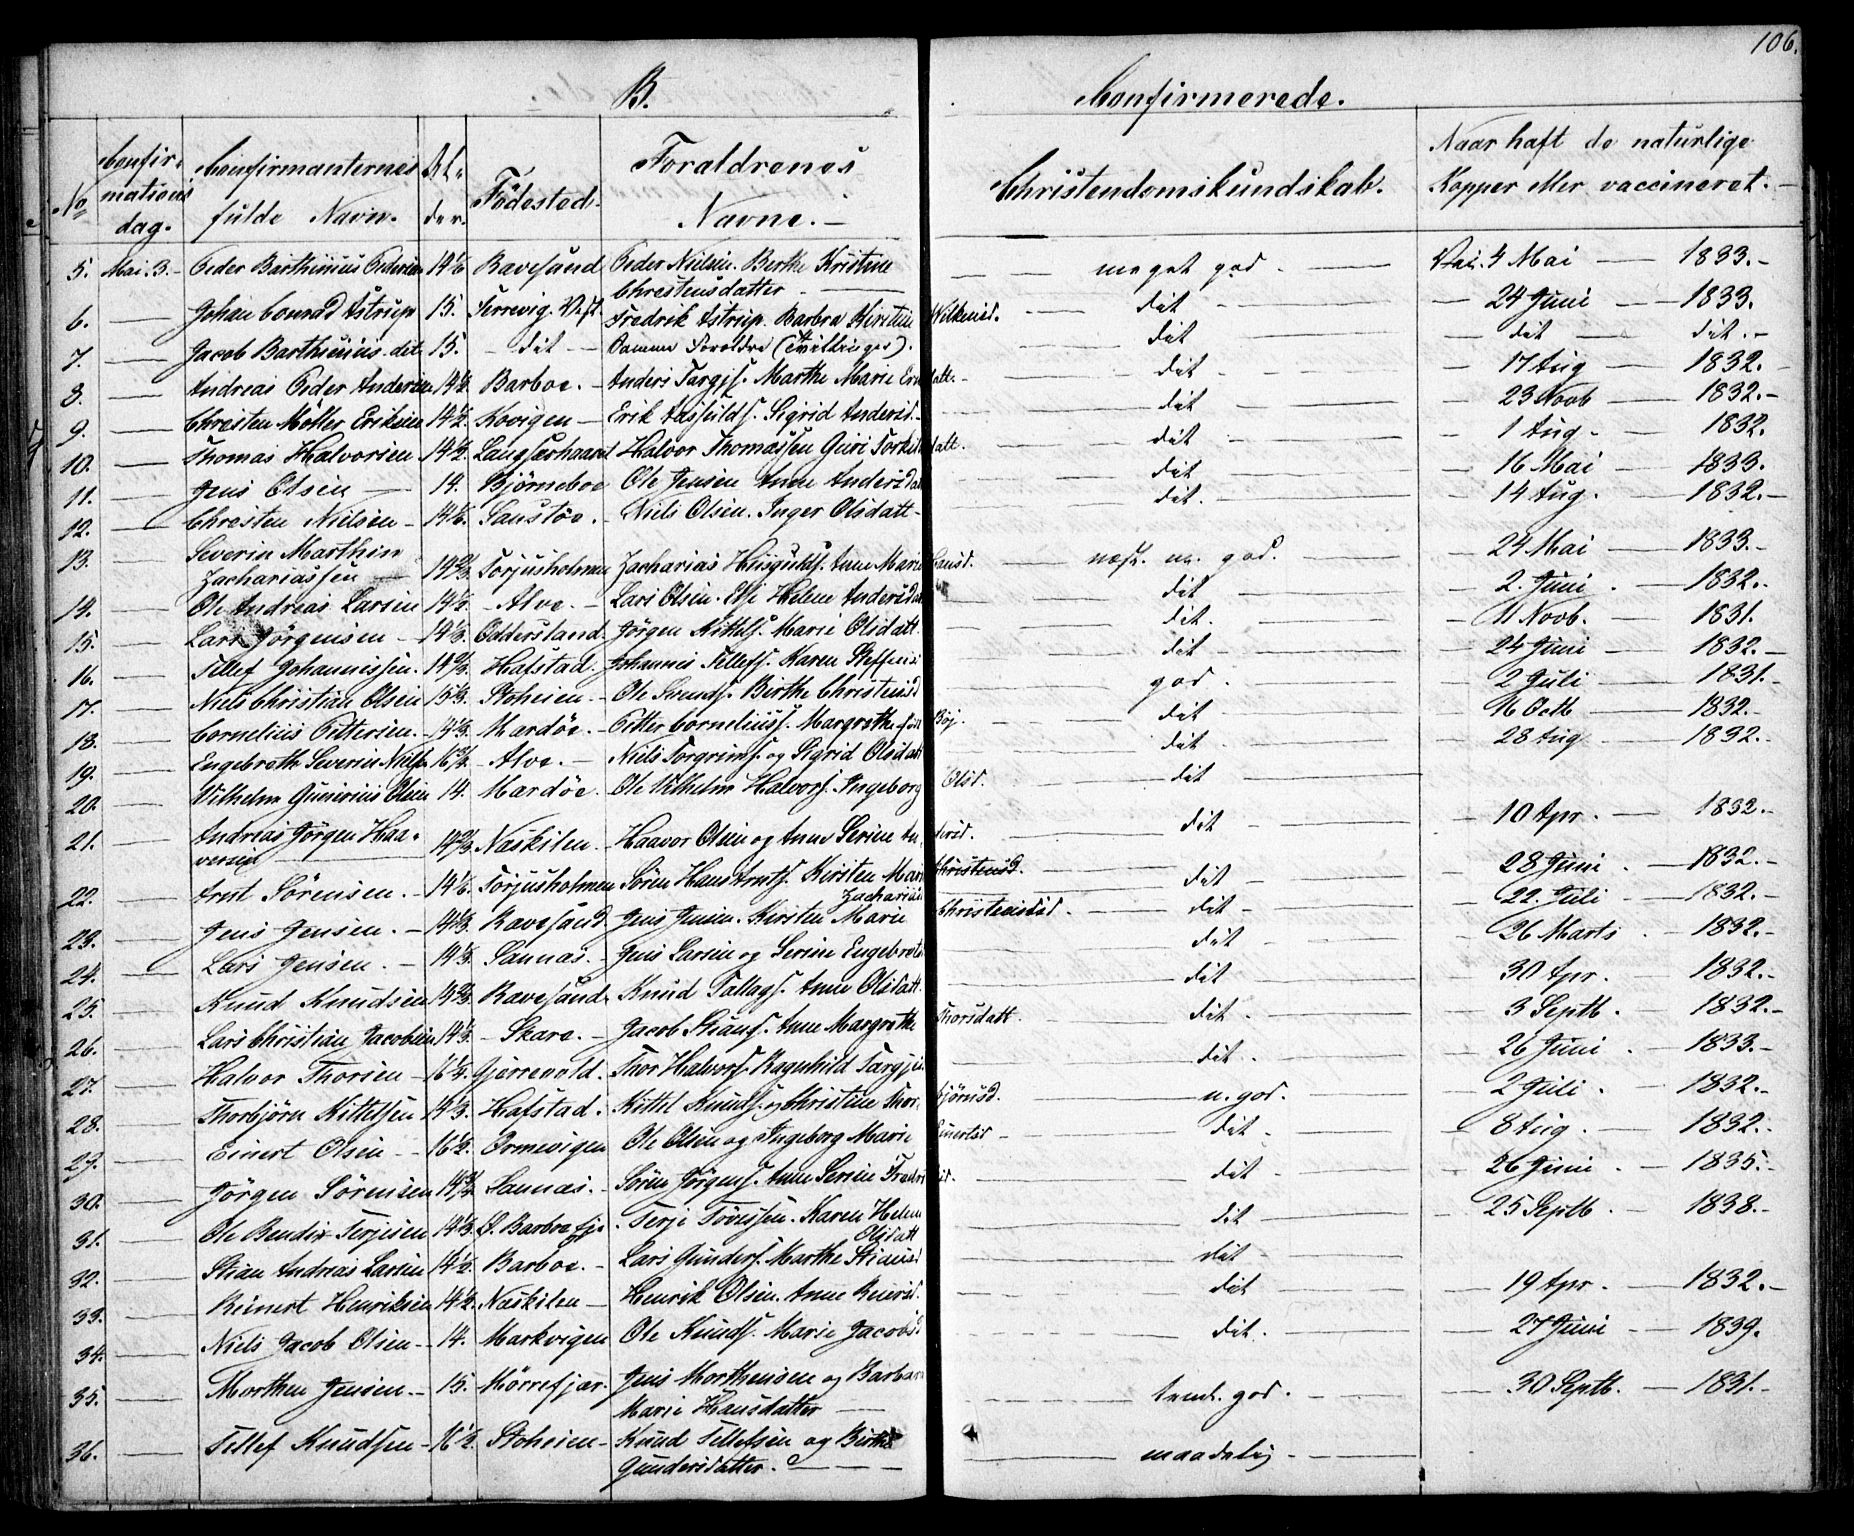 106.
B. Confirmerede.
No Confirmationsdag. Confirmanternes fulde Navn. Alder. Födested. Forældrenes Navne. Christendomskundskab. Naar haft de naturlige Kopper eller vaccineret.
5. Mai. 3. Peder Barthinius Pedersen 14 1/2 Ravesand Peder Nielsen. Berthe Kristine Christensdatter meget god. Vac. 4 Mai 1833.
6. — Johan Conrad Astrup 15. Terrevig. Vest. Fredrik Astrup. Barbra Kirstine Wilkensd. dit 24 Juni 1833.
7. — Jacob Barthinius dit 15. dit Samme Foraldre (Tvillinger). dit dit dit.
8. — Andreas Peder Andersen 14 1/2 Barboe. Anders Targjs. Marthe Marie Ersdatt. dit 17 Aug 1832.
9. — Christen Möller Eriksen 14 1/2 Kovigen Erik Aasfulds. Sigrid Andersd. dit 23 Novb 1832.
10. — Thomas Halvorsen 14 1/2 Langsæhaaven Halvor Thomassen Guri Torkilsdatt. dit 1 Aug 1832.
11. — Jens Olsen 14. Björneboe Ole Jensen Anne Andersdatt dit 16 Mai 1833.
12. — Christen Nielsen 14 1/2 Sandstöe. Niels Olsen. Inger Olsdatt dit. 14 Aug. 1832.
13. — Severin Marthin Zachariassen 14 2/3 Torjusholmen Zacharias Hisguldss. Anne Marie Hansd. næst. m. god. 24 Mai 1833.
14. — Ole Andreas Larsen 14 1/2 Alve. Lars Olsen. Else Helene Andersdatt dit 2. Juni 1832.
15. — Lars Jörgensen 14 1/3 Oddersland. Jörgen Kittels. Marie Olsdatt. dit. 11 Novb. 1831.
16. — Tellef Johannissen. 14 2/3 Hafstad. Johannes Tellefs. Karen Steffensd dit 24 Juni 1832.
17. — Niels Christian Olsen 15 1/3 Stoheien Ole Svends. Birthe Christensd god. 2 Juli 1831.
18. — Cornelius Pettersen. 14 1/3 Mardöe. Petter Corneliuss. Margrethe föd Böj. dit 16 Octb 1832.
19. — Engebreth Severin Niels. 16 1/2 Alve. Niels Torgrims. og Sigrid Olsdatt dit 28 Aug 1832.
20. — Wilhelm Gunerius Olsen 14. Mardöe. Ole Wilhelm Halvors. Ingeborg Olsd. dit
21. — Andreas Jörgen Haavorsen 14 2/3 Næskilen Haavor Olsen og Anne Serine Andersd. dit 10 Apr. 1832.
22. — Arnt Sörensen. 14 1/6 Torjusholmen Sören Hans Arnts. Kirsten Marie Zachariasd Christensd. dit 28 Juni 1832.
23. — Jens Jensen. 14 1/3 Ravesand Jens Jensen. Kirsten Marie Christensdd. dit 22. Juli 1832.
24. — Lars Jensen. 14 1/3 Sannas. Jens Larsen og Serine Engebretsd dit 26 Marts 1832.
25. — Knud Knudsen 14 2/3 Ravesand Knud Tallags. Anne Olsdatt. dit 30 Apr. 1832.
26. — Lars Christian Jacobsen 14 1/3 Skare. Jacob Stians. Anne Margrethe Thorsdatt. dit. 3 Septb. 1832.
27. — Halvor Thorsen 16 1/2 Gjerrevold. Thor Halvors. Ragnhild Targjeisd dit. 26 Juni 1833.
28. — Thorbjörn Kittelsen 14 1/3 Hafstad. Kittel Knuds. og Christine Thorbjörnsd. m. god. 2 Juli 1832.
29. — Einert Olsen 16 1/2 Ormevigen Ole Olsen og Ingeborg Marie Einertsd dit 8 Aug. 1832.
30. — Jörgen Sörensen 14 3/4 Sannas. Sören Jörgens. Anne Serine Fredriksd. dit 26 Juni 1835.
31. — Ole Bendix Terjesen 14 1/3 S. Barbrafje. Terje Torissen. Karen Helene Olsdatt dit 25 Septb. 1838.
32. — Stian Andreas Larsen 14 1/2 Barboe. Lars Gunders. Marthe Stiansd dit
33. — Reinert Henriksen 14 1/2 Næskilen Henrik Olsen. Anne Reiersd. dit 19 Apr. 1832.
34. — Niels Jacob Olsen 14. Markvigen Ole Knuds. Marie Jacobsd dit. 27 Juni 1839.
35. — Morthen Jensen 15. Mörrefjær. Jens Morthensen og Barbara Marie Hansdatter teml. god. 30 Septb. 1831.
36. — Tellef Knudsen 16 1/2 Stoheien Knud Tellefsen og Birthe Gundersdatter. maadelig